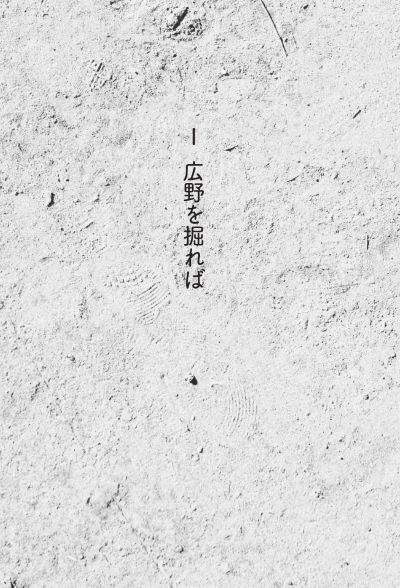 I 広野を掘れば